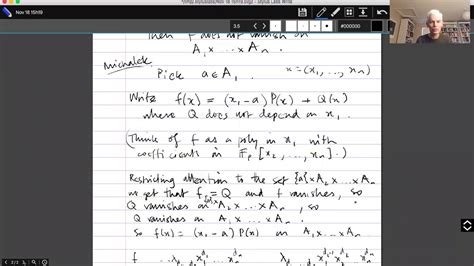 Nov 18 15h19
3.5
#000000
Then f does not vanish on
A₁ × ... × Aₙ
Michalek
Pick a ∈ A₁. x = (x₁, ..., xₙ)
Write f(x) = (x₁ - a) P(x) + Q(x)
where Q does not depend on x₁.
(Think of f as a poly in x₁ with
coefficients in 𝔽ₚ[x₂, ..., xₙ].)
Restricting attention to the set {a} × A₂ × ... × Aₙ
we get that f = Q and f vanishes, so
Q vanishes on {a} × A₂ × ... × Aₙ, so
Q vanishes on A₁ × ... × Aₙ.
So f(x) = (x₁ - a) P(x) on A₁ × ... × Aₙ